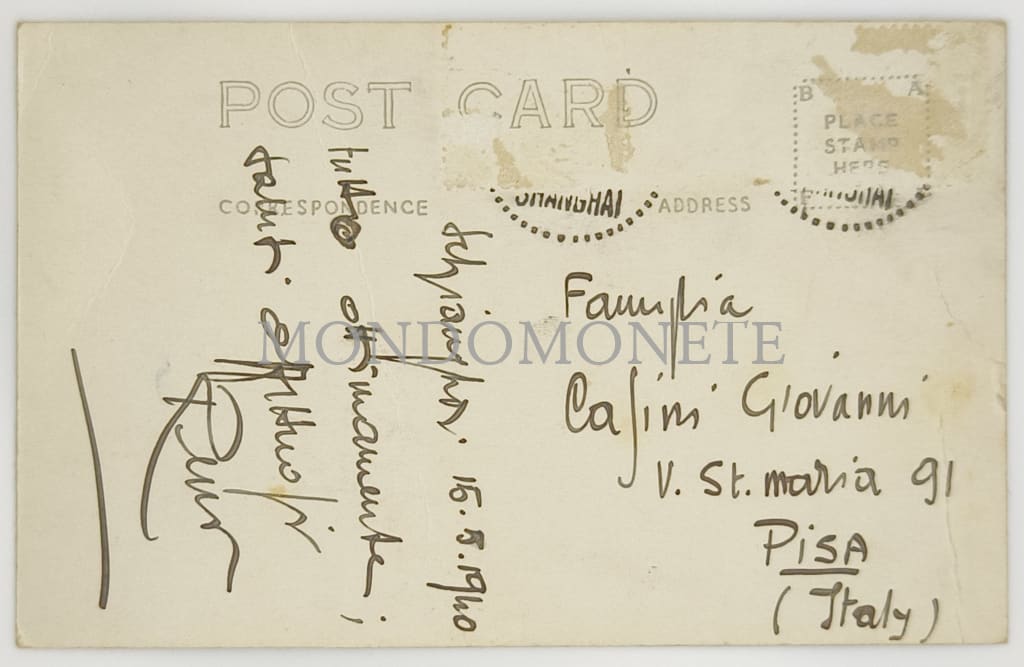 POST CARD
B A
PLACE
STAMP
HERE
CORRESPONDENCE
ADDRESS
SHANGHAI
SHANGHAI
Schianghai 15.5.1940
tutto ottimamente;
saluti affettuosi
Famiglia
Casini Giovanni
V. St. Maria 91
PISA
(Italy)
MONDOMONETE